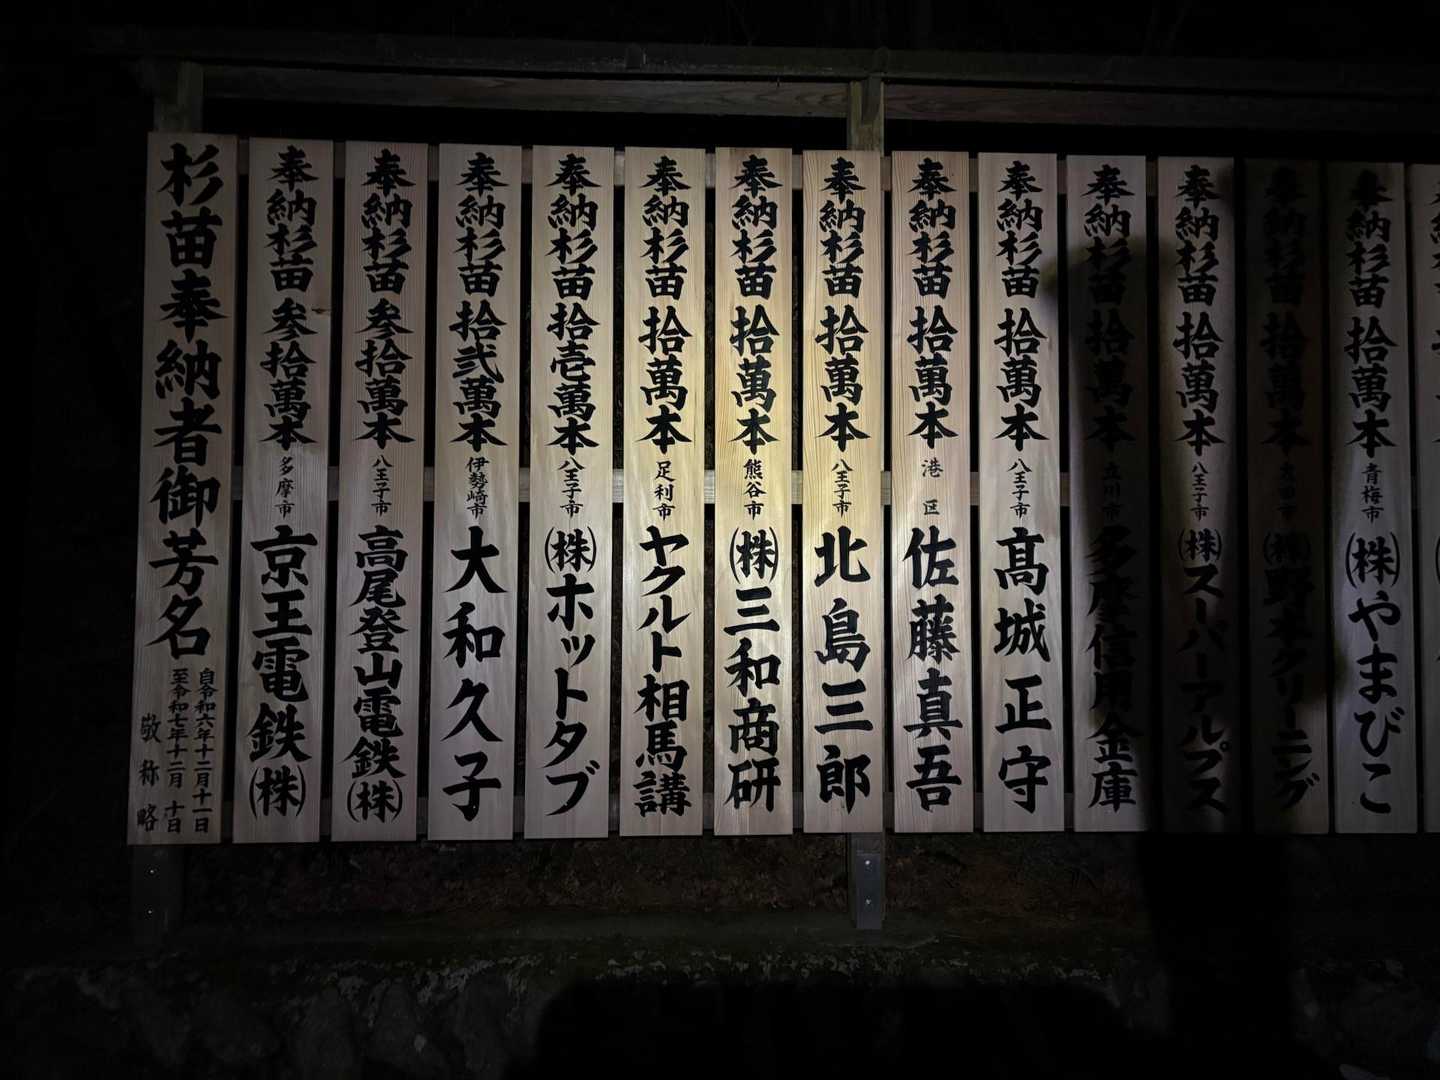 杉苗奉納者御芳名
自令和六年十二月十一日
至令和七年十二月十日
敬称略
奉納杉苗参拾萬本 多摩市 京王電鉄(株)
奉納杉苗参拾萬本 八王子市 高尾登山電鉄(株)
奉納杉苗拾弐萬本 伊勢崎市 大和久子
奉納杉苗拾壱萬本 八王子市 (株)ホットタブ
奉納杉苗拾萬本 足利市 ヤクルト相馬講
奉納杉苗拾萬本 熊谷市 (株)三和商研
奉納杉苗拾萬本 八王子市 北島三郎
奉納杉苗拾萬本 港区 佐藤真吾
奉納杉苗拾萬本 八王子市 髙城正守
奉納杉苗拾萬本 立川市 多摩信用金庫
奉納杉苗拾萬本 八王子市 (株)スーパーアルプス
奉納杉苗拾萬本 (株)野本クリーニング
奉納杉苗拾萬本 青梅市 (株)やまびこ